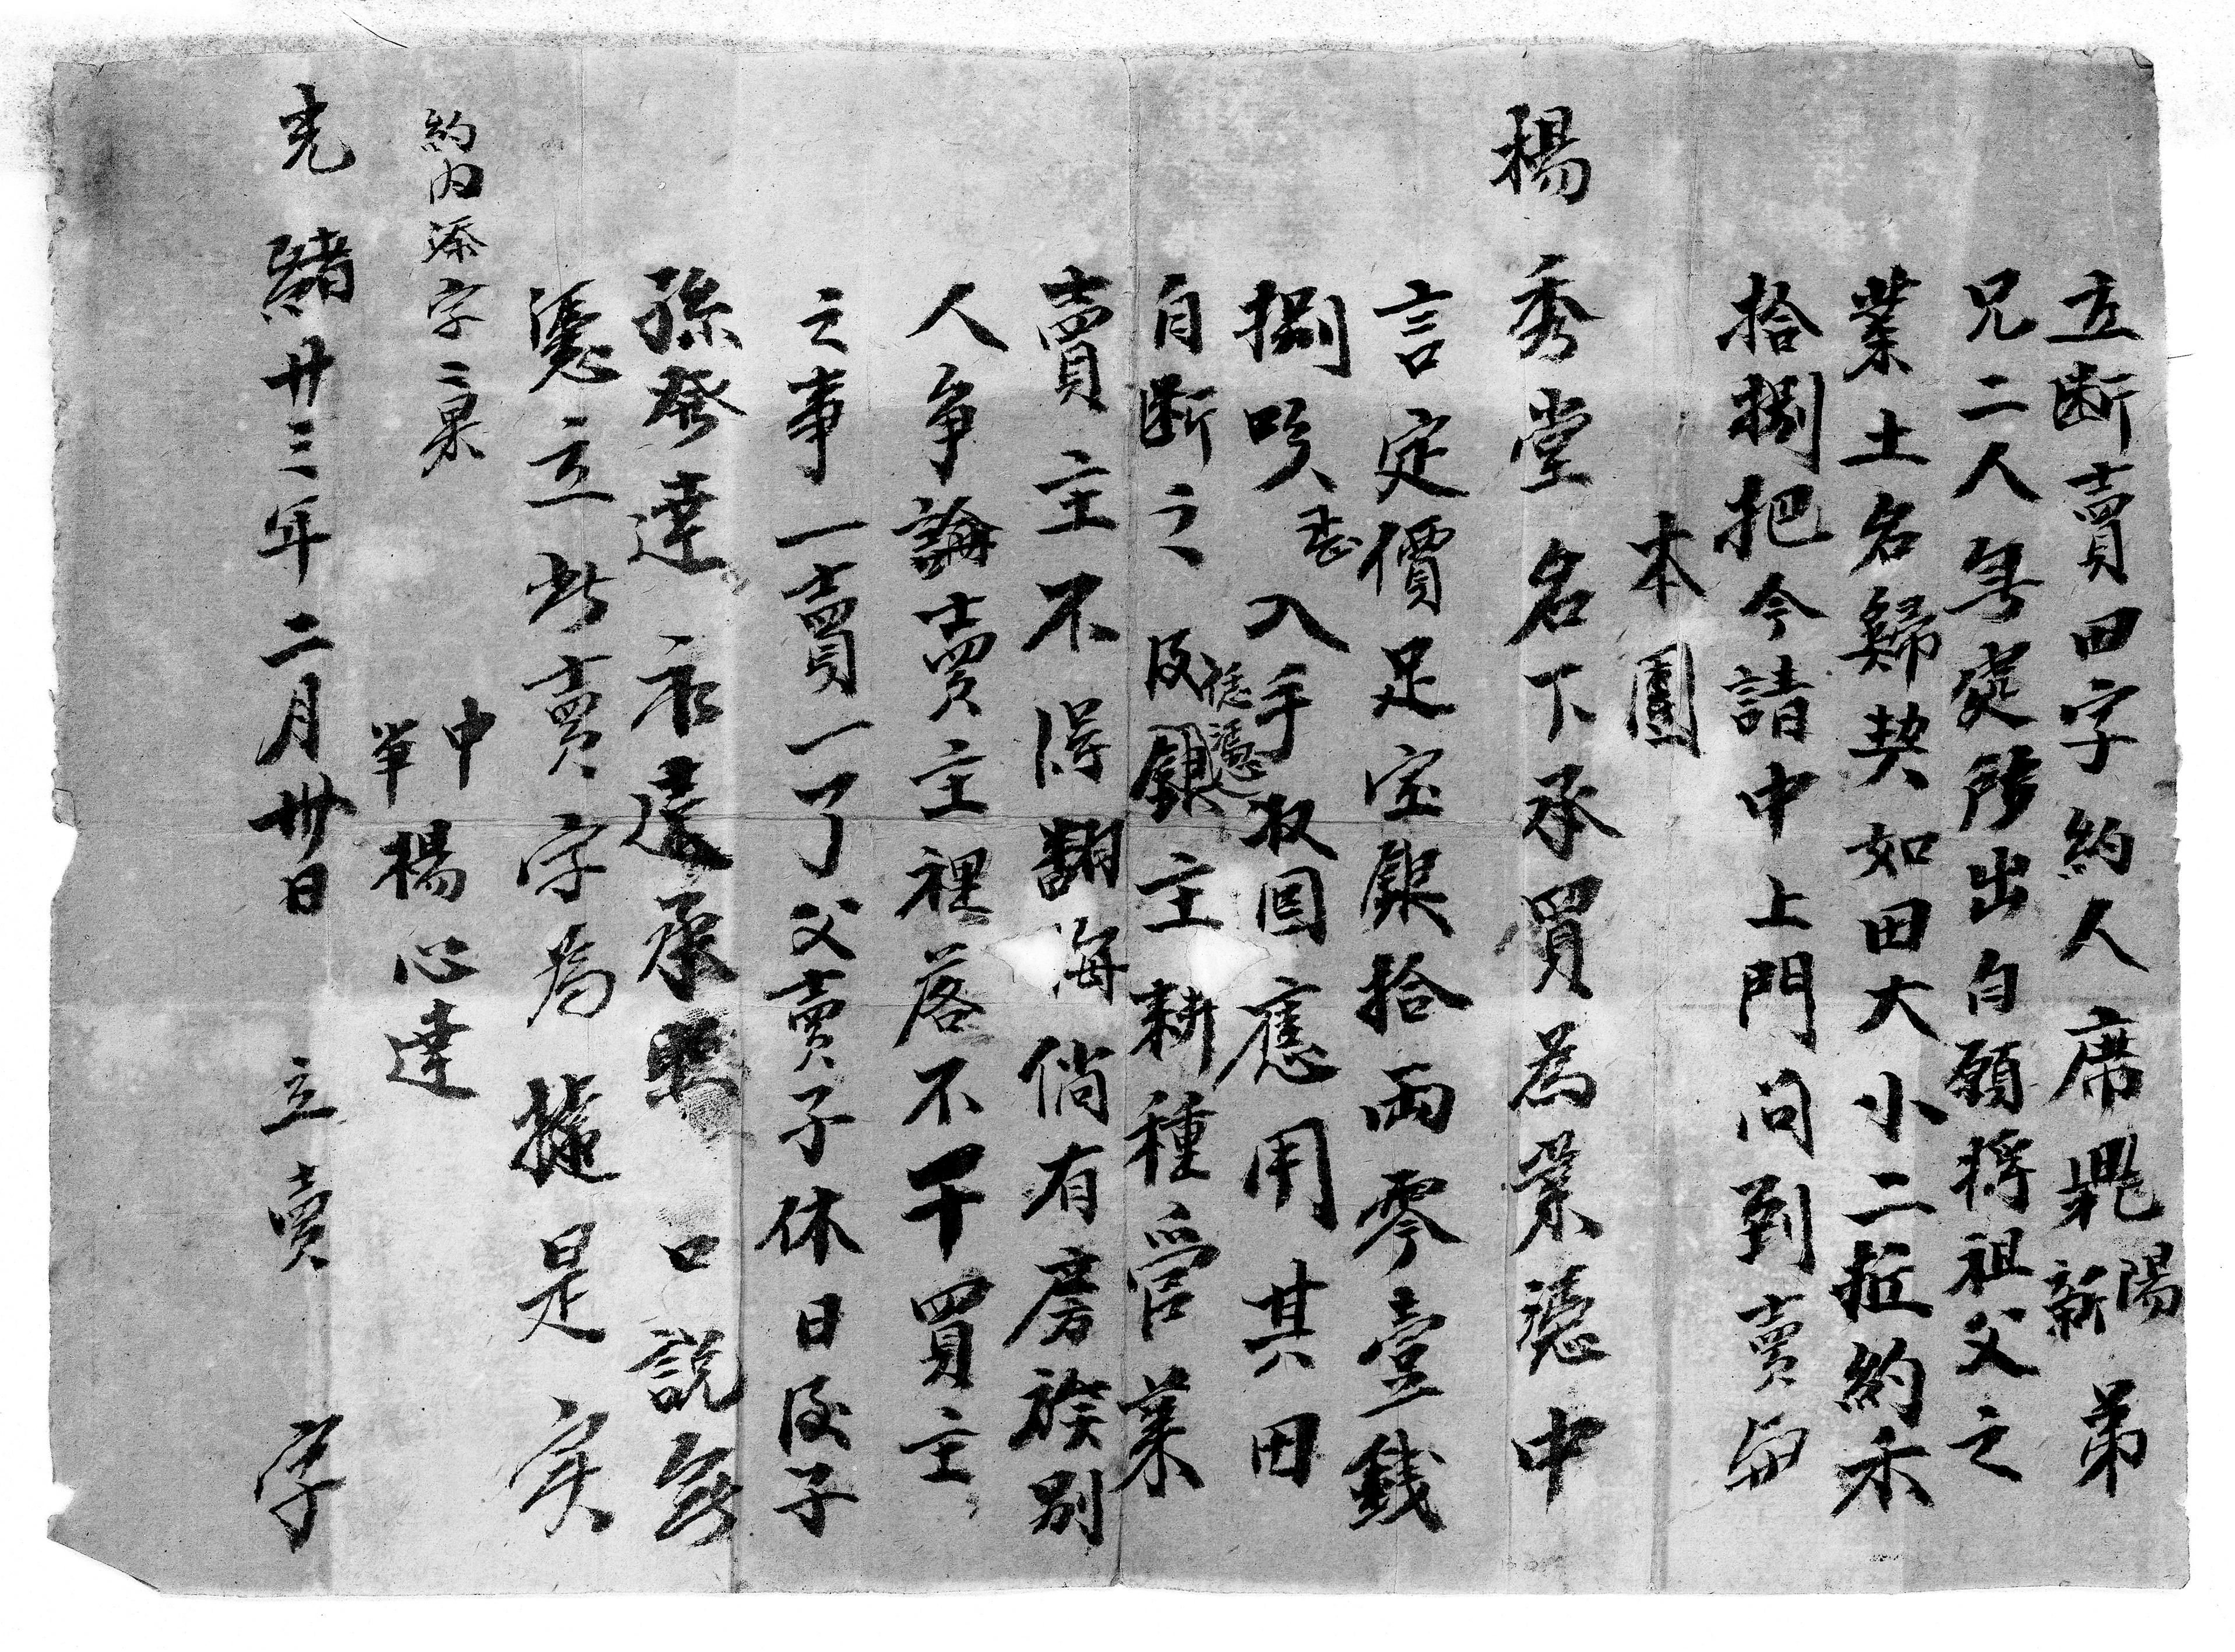 立断賣田字約人席 陽新弟
兄二人無處所出自願將祖父之
業土名歸契如田大小二坵約禾
拾捌把今請中上門問到賣與
本團
楊秀堂名下承買為業憑中
言定價足宝銀拾両零壹錢
捌 入手收回應用其田
自断之後憑銀主耕種管業
賣主不得翻悔倘有房族别
人争論賣主裡落不干買主
之事一賣一了父賣子休日後子
孫發達永遠承照口説無
憑立此賣字為據是实
約内添字二
中
筆楊心達
光緒廿三年二月卅日 立賣字